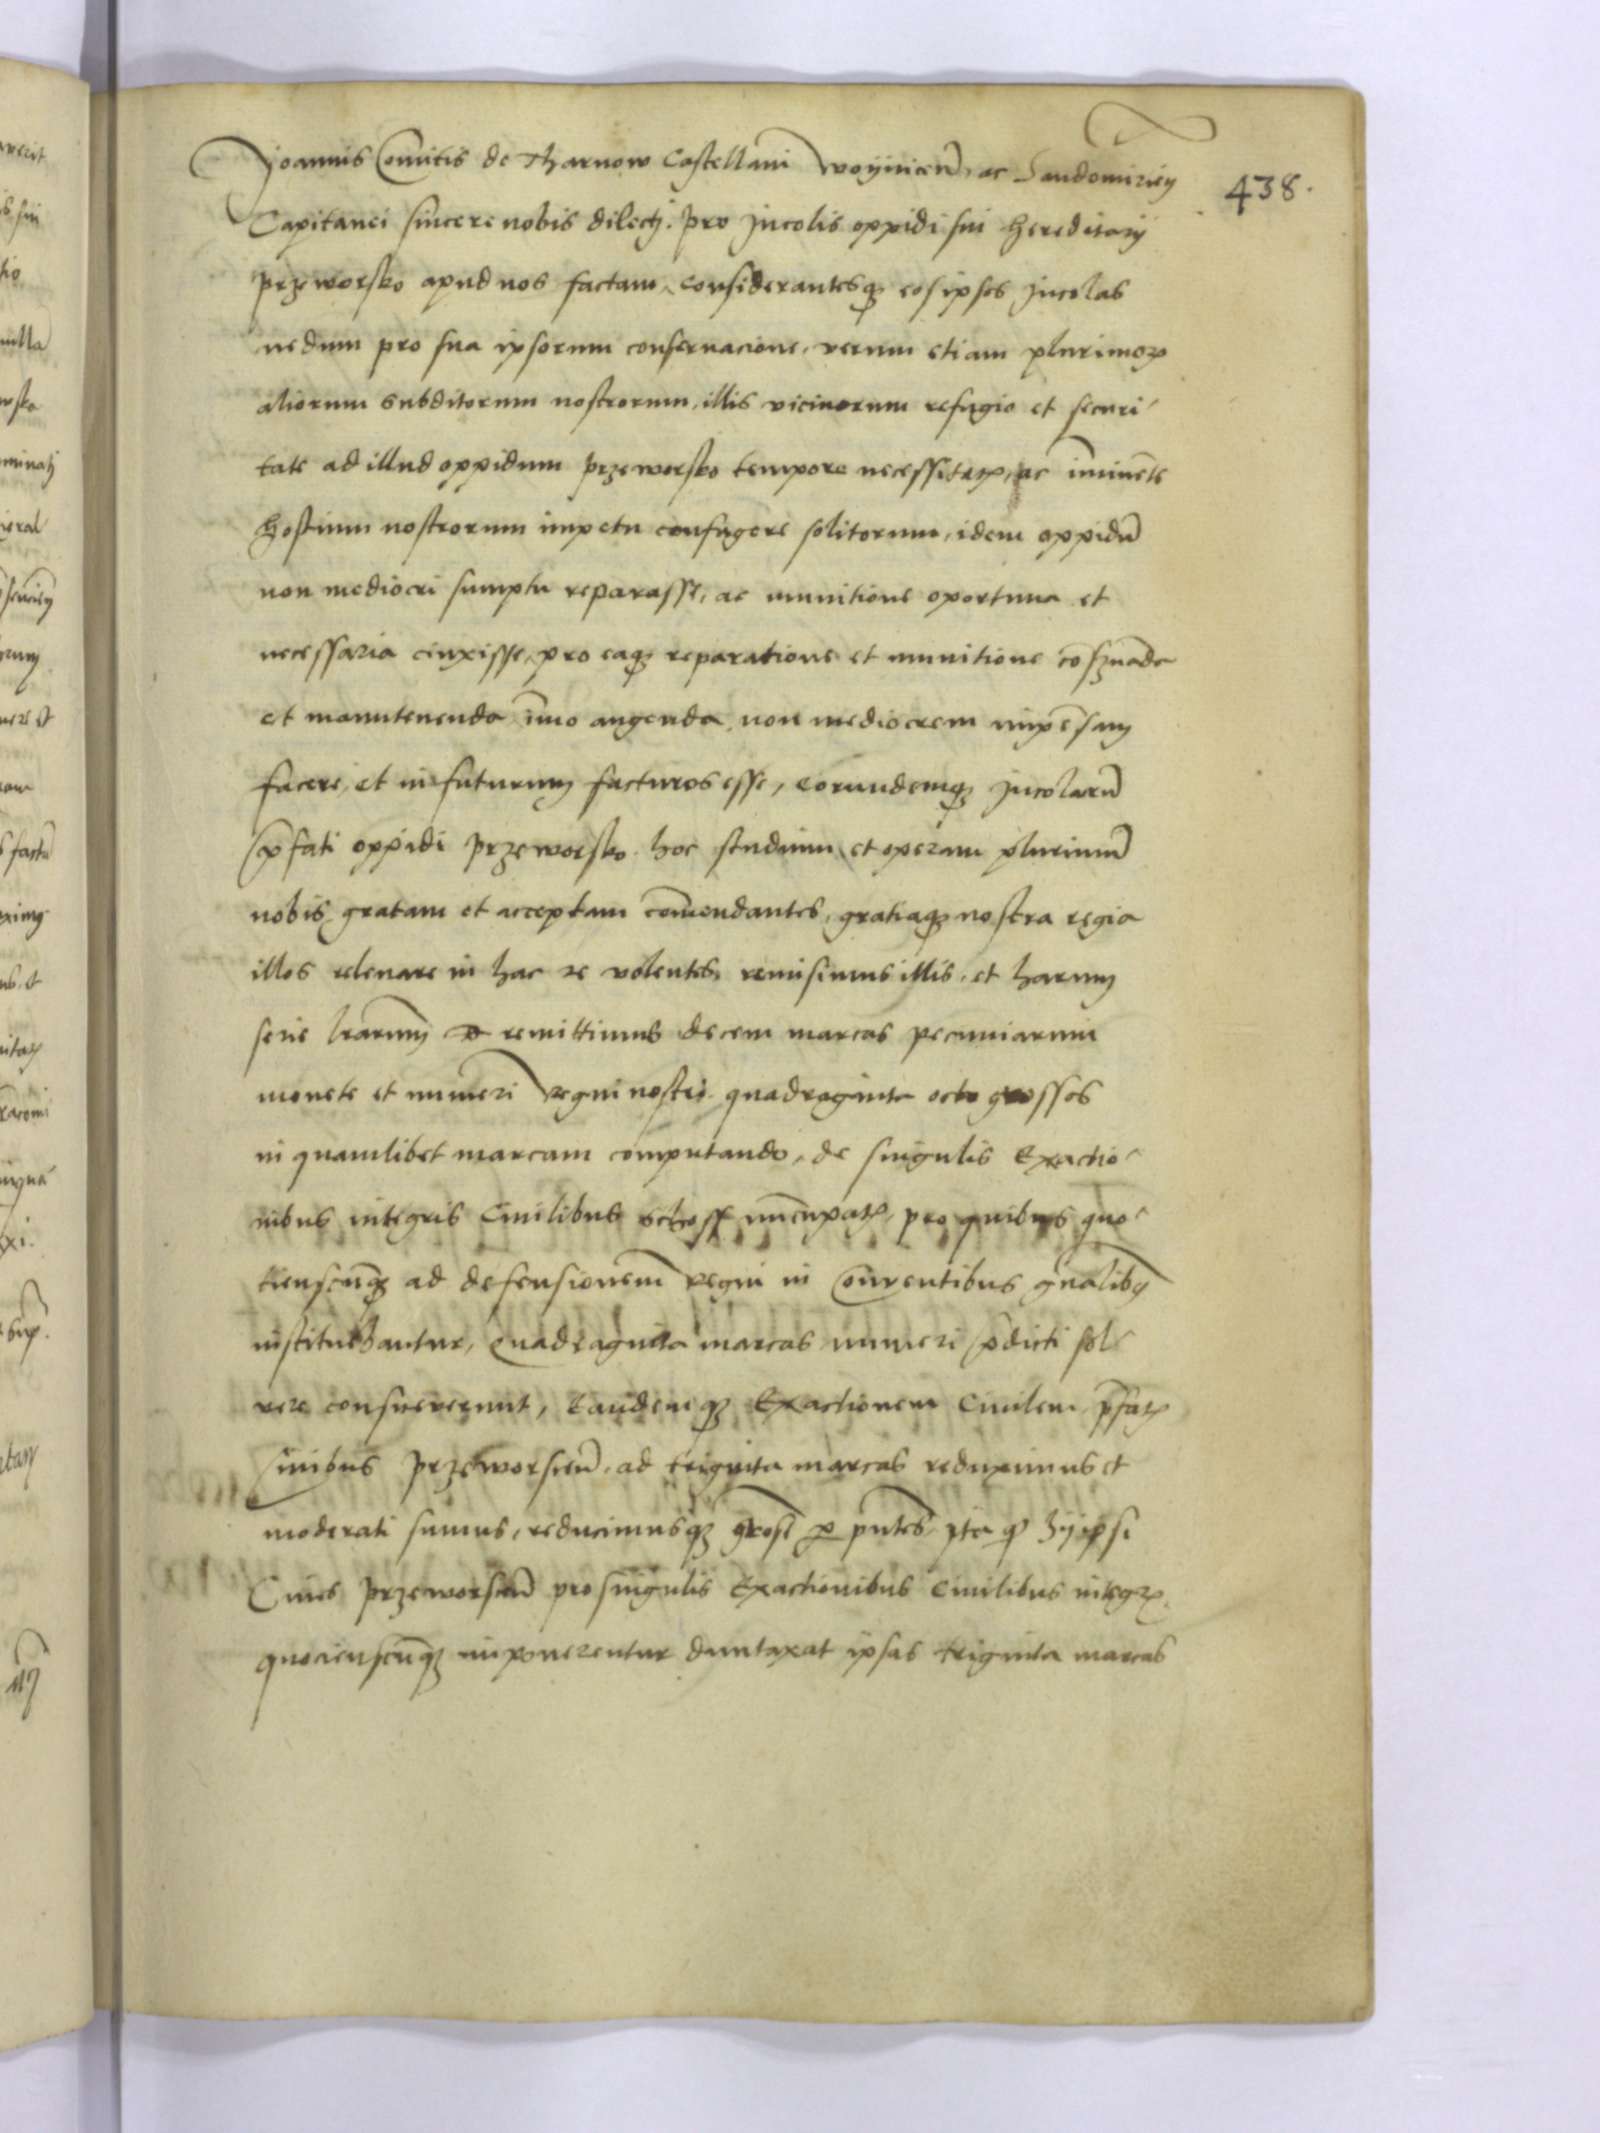 438.
Joannis Comitis de Tharnow Castellani woyniceñ, ac Sandomirieñ
Capitanei sincere nobis dilecti. pro Jncolis oppidi sui hereditarij
przeworsko apud nos factam, considerantesq eos ipsos Jncolas
nedum pro sua ipsorum conseruacione, verum etiam plurimoꝝ
aliorum subditorum nostrorum, illis vicinorum refugio et securi
tate ad illud oppidum przeworsko tempore necessitatꝭ, ac im̄inēte
hostium nostrorum impetu confugere solitorum, idem oppidū
non mediocri sumptu reparasse, ac munitione oportuna et
necessaria cinxisse, pro eaqꝫ reparatione et munitione cōẞuāda
et manutenenda īmo augenda, non mediocrem impēsam
facere, et in futurum facturos esse, eorundemqꝫ Jncolarū
p̄fati oppidi przeworsko hoc studium et operam plurimū
nobis gratam et acceptam com̄endantes, gratiaqꝫ nostra regia
illos releuare in hac re volentes, remisimus illis, et harum
serie lrarum remittimus decem marcas pecuniarum
monete et numeri regni nostri quadraginta octo grossos
in quamlibet marcam computando, de singulis Exactio
nibus integris Ciuilibus schoss nūcupatꝭ, pro quibus quo
tienscūqꝫ ad defensionem regni in Conuentibus gn̄alibꝰ
instituebantur, quadraginta marcas numeri p̄dicti sol
uere consueuerunt, Eandemqꝫ Exactionem Ciuilem p̄fatꝭ
Ciuibus przeworscen̄, ad triginta marcas reduximus et
moderati sumus, reducimusqꝫ ꝑ pn̄tes, Jta ꝙ hij ipsi
Ciues przeworscen̄ pro singulis Exactionibus Ciuilibus integrꝭ,
quocienscūqꝫ imponerentur duntaxat ipsas triginta marcas